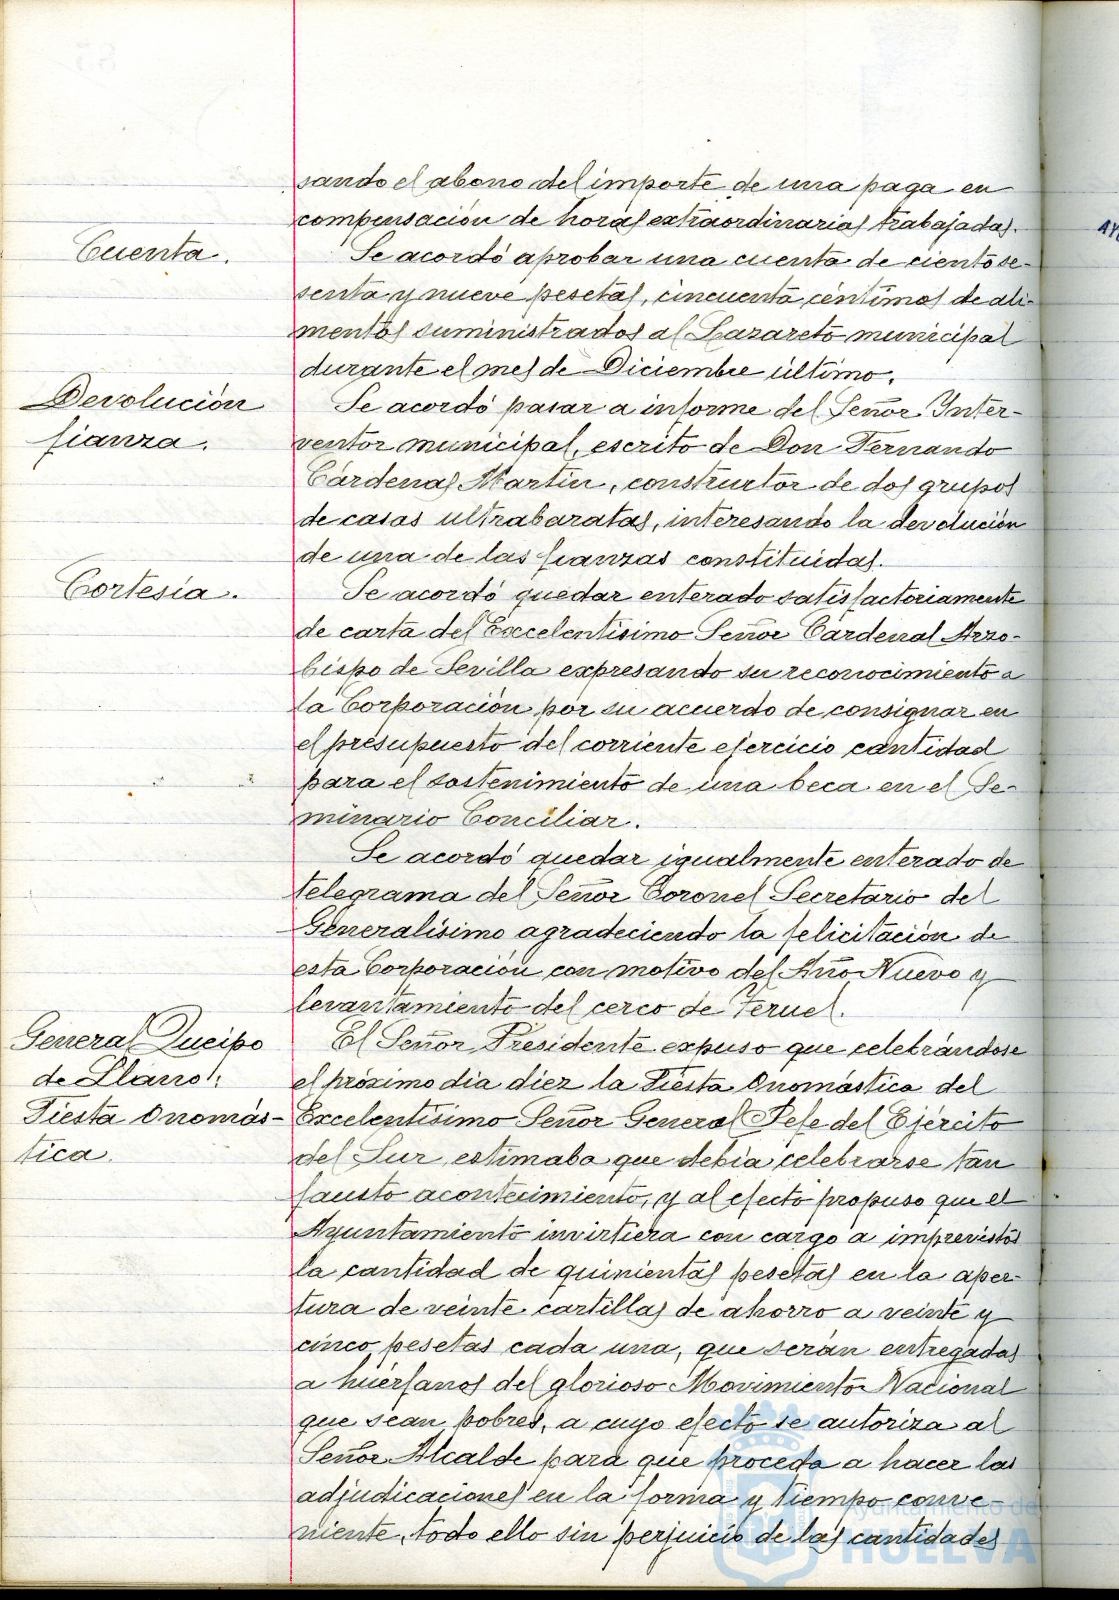 sando el abono del importe de una paga en
compensación de horas extraordinarias trabajadas.
Cuenta.
Se acordó aprobar una cuenta de ciento se-
senta y nueve pesetas, cincuenta céntimos de ali-
mentos suministrados al Lazareto municipal
durante el mes de Diciembre último.
Devolución
fianza.
Se acordó pasar a informe del Señor Inter-
ventor municipal, escrito de Don Fernando
Cárdenas Martin, constructor de dos grupos
de casas ultrabaratas, interesando la devolución
de una de las fianzas constituidas.
Cortesía.
Se acordó quedar enterado satisfactoriamente
de carta del Excelentísimo Señor Cardenal Arzo-
bispo de Sevilla expresando su reconocimiento a
la Corporación por su acuerdo de consignar en
el presupuesto del corriente ejercicio cantidad
para el sostenimiento de una beca en el Se-
minario Conciliar.
Se acordó quedar igualmente enterado de
telegrama del Señor Coronel Secretario del
Generalísimo agradeciendo la felicitación de
esta Corporación con motivo del Año Nuevo y
levantamiento del cerco de Teruel.
General Queipo
de Llano:
Fiesta Onomás-
tica.
El Señor Presidente expuso que celebrándose
el próximo dia diez la Fiesta Onomástica del
Excelentísimo Señor General Jefe del Ejército
del Sur, estimaba que debía celebrarse tan
fausto acontecimiento, y al efecto propuso que el
Ayuntamiento invirtiera con cargo a imprevistos
la cantidad de quinientas pesetas en la aper-
tura de veinte cartillas de ahorro a veinte y
cinco pesetas cada una, que serán entregadas
a huérfanos del glorioso Movimiento Nacional
que sean pobres, a cuyo efecto se autoriza al
Señor Alcalde para que proceda a hacer las
adjudicaciones en la forma y tiempo conve-
niente, todo ello sin perjuicio de las cantidades
Ayuntamiento de
HUELVA